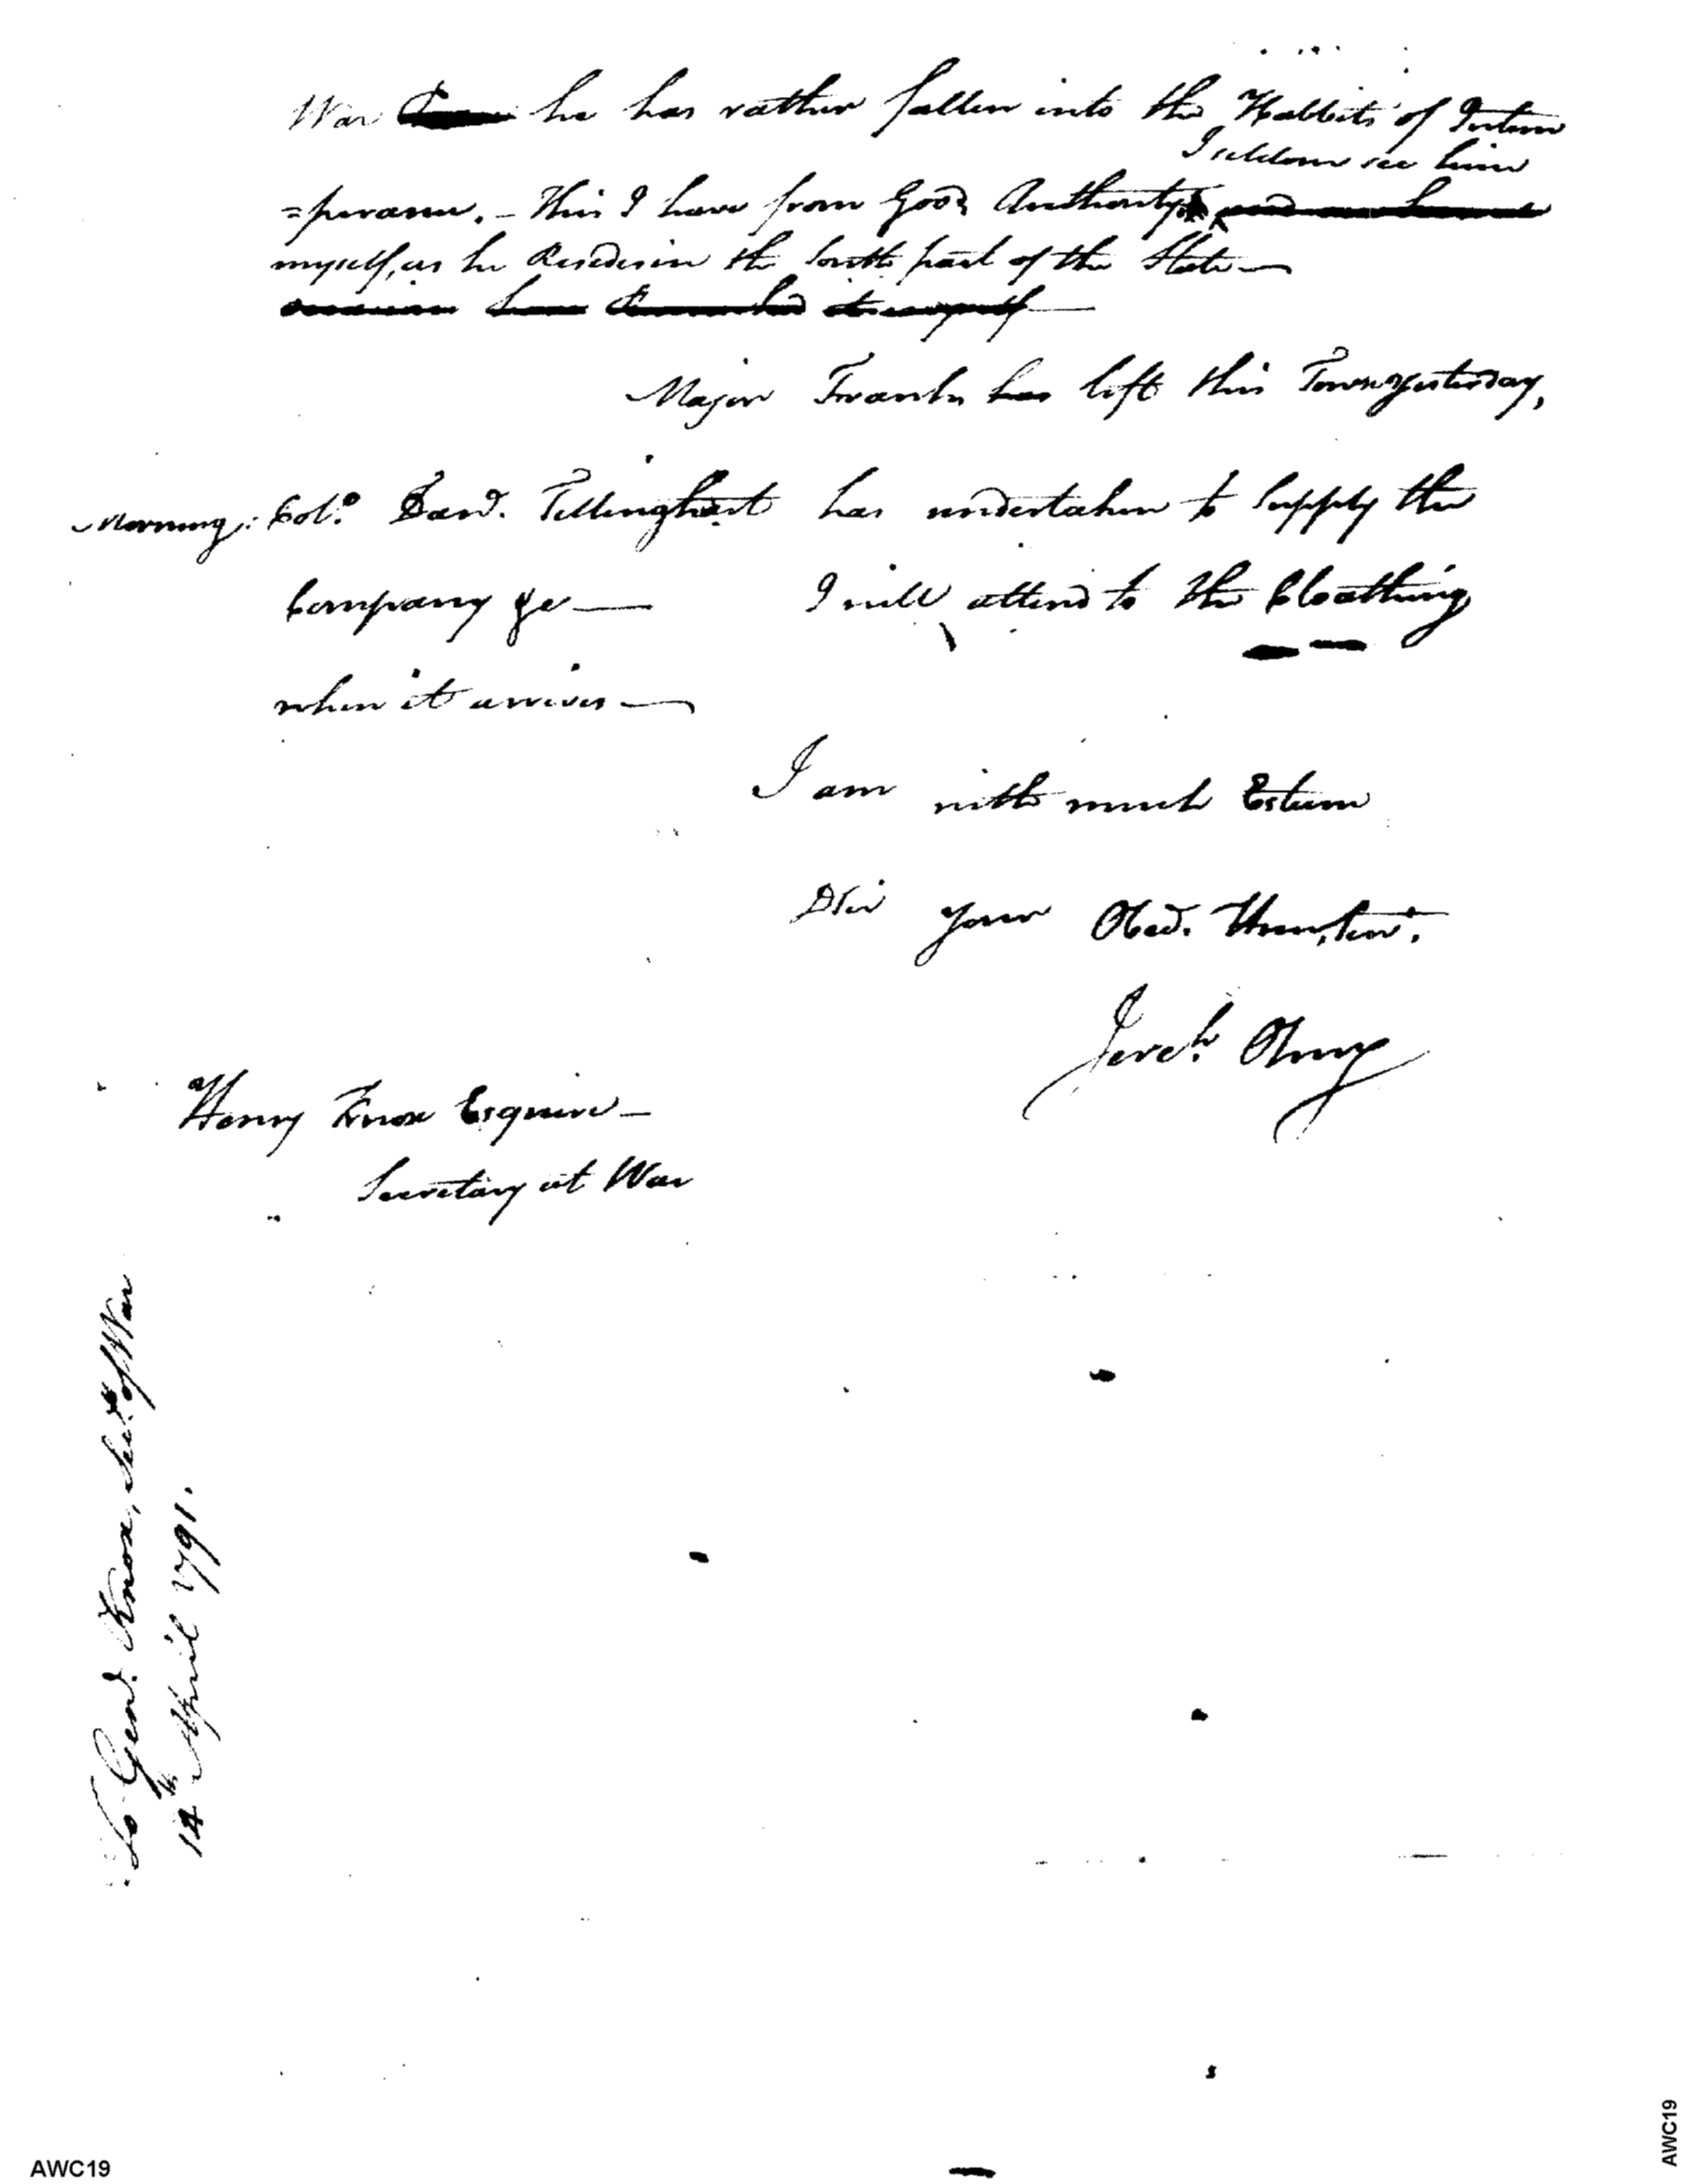 War he has rather fallen into the Habbits of Intem
I seldom see him
=perance. – this I have from Good Authority, and
myself, as he Resides in the South part of the State —
Major Franks has left this Town yesterday,
Morning. Colo. Danl. Tillinghast has undertaken to Supply the
Company &c — I will attend to the Cloathing
when it arrives —
I am with much Esteem
DSir your Obed. Hum. Servt.
Jereh. Olney
Henry Knox Esquire —
Secretary at War
To Genl. Knox, Secy. of War
14th April 1791.
AWC19
AWC19